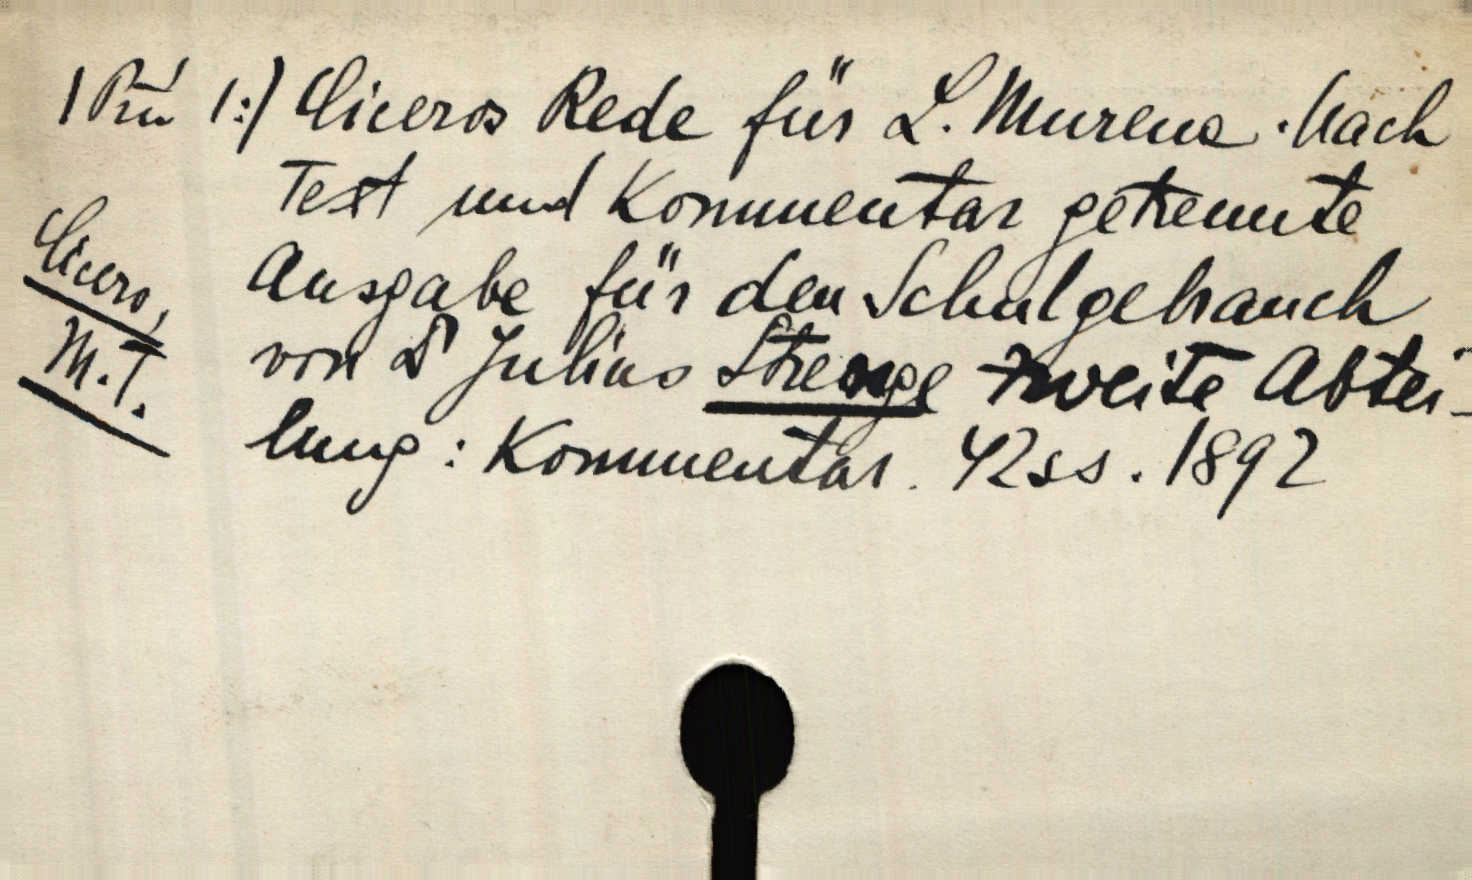 1:) Ciceros Rede für L. Murena. Nach
Text und Kommentar getrennte
Cicero, Ausgabe für den Schulgebrauch
M.T. von Dr Julius Strenge zweite Abtei-
lung: Kommentar. 42 ss. 1892